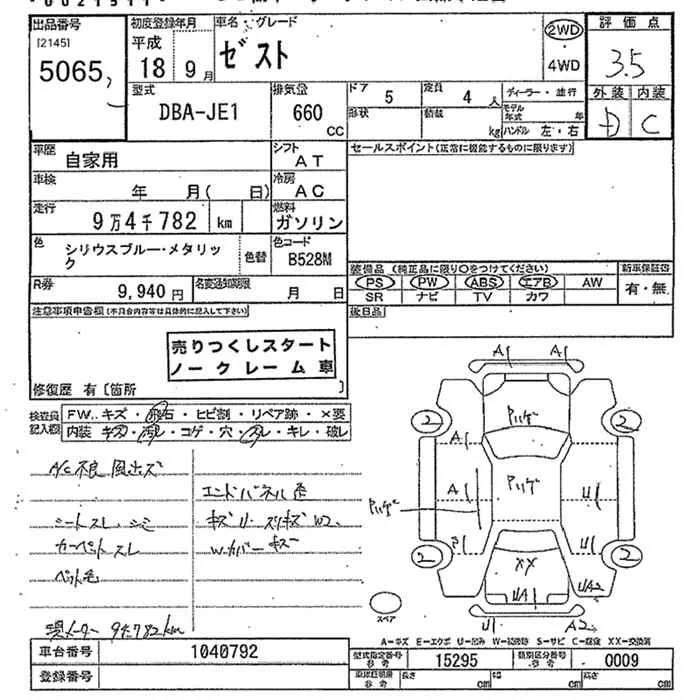 出品番号
[2145]
5065
初度登録年月
平成
18 9月
車名・グレード
ゼスト
2WD
4WD
評価点
3.5
外装 内装
D C
型式
DBA-JE1
排気量
660
CC
ドア
5
定員
4 人
形状
積載
kg
ディーラー・並行
モデル年式 年
ハンドル 左・右
車歴
自家用
シフト
AT
車検
年 月( 日)
冷房
AC
走行
9万4千782 km
燃料
ガソリン
色
シリウスブルー・メタリッ
ク
色替
色コード
B528M
R券
9,940円
名変通知期限
月 日
セールスポイント(正常に機能するものに限ります)
装備品 (純正品に限り○をつけてください)
PS PW ABS エアB AW
SR ナビ TV カワ
新車保証書
有・無
後日品
注意事項申告欄(不具合内容等は具体的に記入して下さい)
売りつくしスタート
ノークレーム車
修復歴 有〔箇所 〕
検査員
記入欄
FW.. キズ・飛石・ヒビ割・リペア跡・×要
内装 キズ・汚レ・コゲ・穴・スレ・キレ・破レ
A/C不良 風出ズ
シートスレ、シミ
カーペットスレ
ペット毛
現メーター 94,782km
エンドパネル歪
Wカバーキズ
A1 A1
2 2
Pハゲ
A1
Pハゲ
A1 U1
Pハゲ
U1
2 2
XX
UA1 UA2
U1 A2
スペア
A-キズ E-エクボ U-凹み W-補修跡 S-サビ C-腐食 XX-交換済
車台番号
1040792
登録番号
型式指定番号
参考
15295
類別区分番号
参考
0009
車検証明書
参考
長さ cm
幅 cm
高さ cm